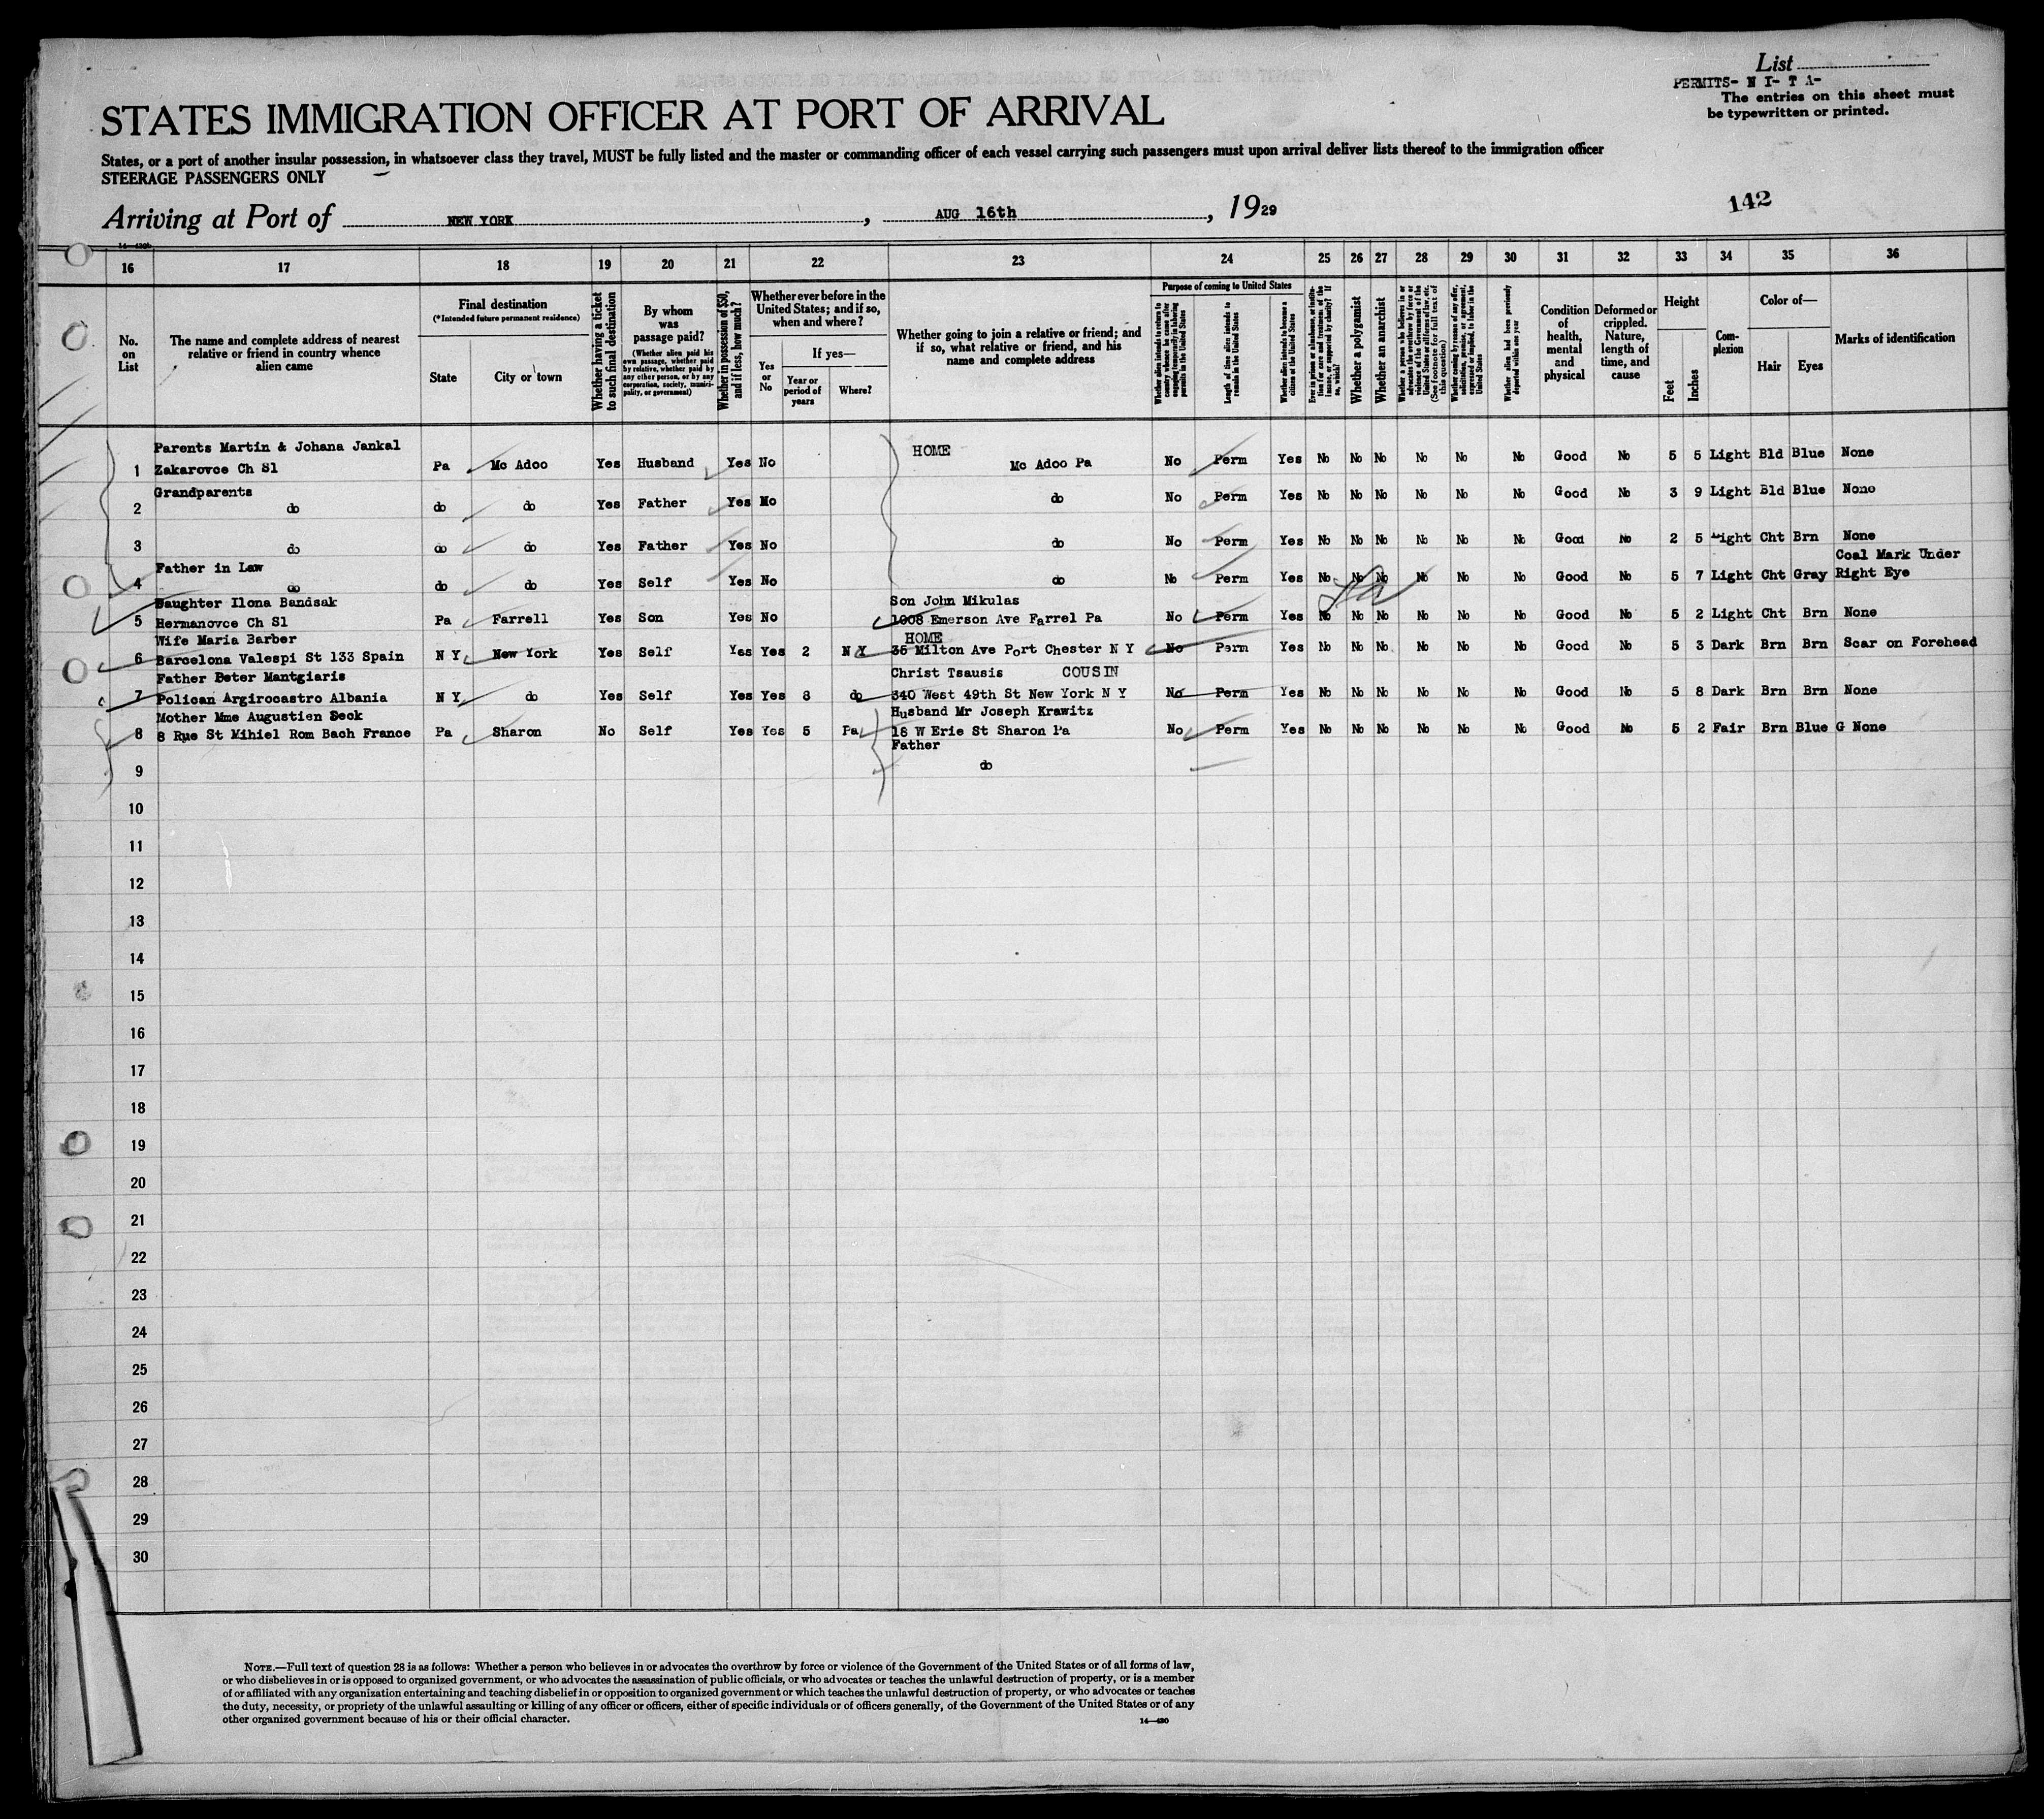 List
PERMITS- N I- T A-
The entries on this sheet must
be typewritten or printed.
STATES IMMIGRATION OFFICER AT PORT OF ARRIVAL
States, or a port of another insular possession, in whatsoever class they travel, MUST be fully listed and the master or commanding officer of each vessel carrying such passengers must upon arrival deliver lists thereof to the immigration officer
STEERAGE PASSENGERS ONLY
Arriving at Port of NEW YORK, AUG 16th, 1929
142
16 17 18 19 20 21 22 23 24 25 26 27 28 29 30 31 32 33 34 35 36
No. on List
The name and complete address of nearest relative or friend in country whence alien came
Final destination
(*Intended future permanent residence)
State
City or town
Whether having a ticket to such final destination
By whom was passage paid?
(Whether alien paid his own passage, whether paid by relative, whether paid by any other person, or by any corporation, society, municipality, or government)
Whether in possession of $50, and if less, how much?
Whether ever before in the United States; and if so, when and where?
Yes or No
If yes—
Year or period of years
Where?
Whether going to join a relative or friend; and if so, what relative or friend, and his name and complete address
Purpose of coming to United States
Whether alien intends to return to country whence he came after engaging temporarily in laboring pursuits in the United States
Length of time alien intends to remain in the United States
Whether alien intends to become a citizen of the United States
Ever in prison or almshouse, or institution for care and treatment of the insane, or supported by charity? If so, which?
Whether a polygamist
Whether an anarchist
Whether a person who believes in or advocates the overthrow by force or violence of the Government of the United States or all forms of law, etc. (See footnote for full text of this question)
Whether coming by reason of any offer, solicitation, promise, or agreement, expressed or implied, to labor in the United States
Whether alien had been previously deported within one year
Condition of health, mental and physical
Deformed or crippled. Nature, length of time, and cause
Height
Feet
Inches
Complexion
Color of—
Hair
Eyes
Marks of identification
Parents Martin & Johana Jankal HOME
1 Zakarovce Ch Sl Pa Mc Adoo Yes Husband Yes No Mc Adoo Pa No Perm Yes No No No No No No Good No 5 5 Light Bld Blue None
Grandparents
2 do do do Yes Father Yes No do No Perm Yes No No No No No No Good No 3 9 Light Bld Blue None
3 do do do Yes Father Yes No do No Perm Yes No No No No No No Good No 2 5 Light Cht Brn None
Father in Law Coal Mark Under
4 do do do Yes Self Yes No do No Perm Yes No No No No No No Good No 5 7 Light Cht Gray Right Eye
Daughter Ilona Bandsak Son John Mikulas
5 Hermanovce Ch Sl Pa Farrell Yes Son Yes No 1008 Emerson Ave Farrel Pa No Perm Yes No No No No No No Good No 5 2 Light Cht Brn None
Wife Maria Barber HOME
6 Barcelona Valespi St 133 Spain N Y New York Yes Self Yes Yes 2 N Y 35 Milton Ave Port Chester N Y No Perm Yes No No No No No No Good No 5 3 Dark Brn Brn Scar on Forehead
Father Peter Mantgiaris Christ Tsausis COUSIN
7 Polican Argirocastro Albania N Y do Yes Self Yes Yes 8 do 340 West 49th St New York N Y No Perm Yes No No No No No No Good No 5 8 Dark Brn Brn None
Mother Mme Augustien Seck Husband Mr Joseph Krawitz
8 8 Rue St Mihiel Rom Bach France Pa Sharon No Self Yes Yes 5 Pa 18 W Erie St Sharon Pa No Perm Yes No No No No No No Good No 5 2 Fair Brn Blue G None
Father
9 do
10
11
12
13
14
15
16
17
18
19
20
21
22
23
24
25
26
27
28
29
30
NOTE.—Full text of question 28 is as follows: Whether a person who believes in or advocates the overthrow by force or violence of the Government of the United States or of all forms of law,
or who disbelieves in or is opposed to organized government, or who advocates the assassination of public officials, or who advocates or teaches the unlawful destruction of property, or is a member
of or affiliated with any organization entertaining and teaching disbelief in or opposition to organized government or which teaches the unlawful destruction of property, or who advocates or teaches
the duty, necessity, or propriety of the unlawful assaulting or killing of any officer or officers, either of specific individuals or of officers generally, of the Government of the United States or of any
other organized government because of his or their official character.
14—430